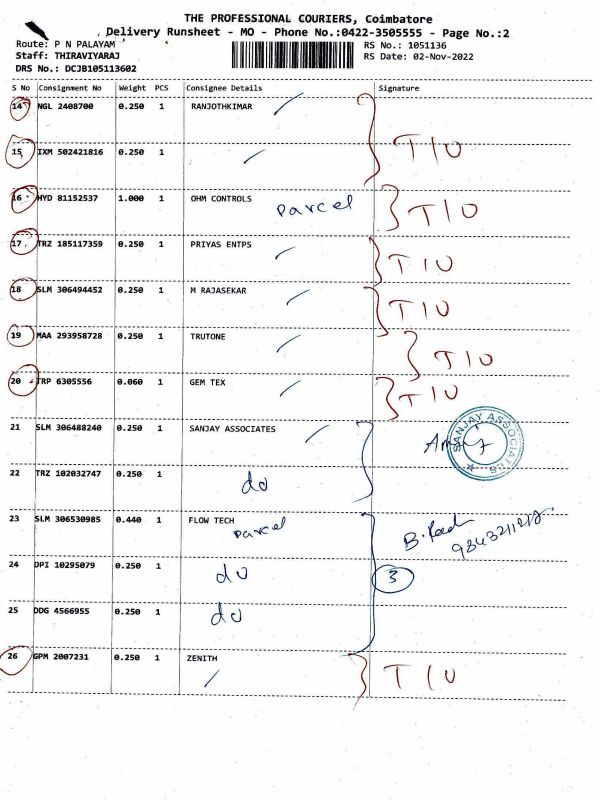 THE PROFESSIONAL COURIERS, Coimbatore
Delivery Runsheet - MO - Phone No.:0422-3505555 - Page No.:2
Route: P N PALAYAM
RS No.: 1051136
Staff: THIRAVIYARAJ
RS Date: 02-Nov-2022
DRS No.: DCJB105113602
S No Consignment No Weight PCS Consignee Details Signature
14 NGL 2408700 0.250 1 RANJOTHKIMAR
15 IXM 502421816 0.250 1 T/O
16 HYD 81152537 1.000 1 OHM CONTROLS parcel T/O
17 TRZ 185117359 0.250 1 PRIYAS ENTPS T/O
18 SLM 306494452 0.250 1 M RAJASEKAR T/O
19 MAA 293958728 0.250 1 TRUTONE T/O
20 TRP 6305556 0.060 1 GEM TEX T/O
21 SLM 306488240 0.250 1 SANJAY ASSOCIATES
SANJAY ASSOCIATES
22 TRZ 102032747 0.250 1 do
23 SLM 306530985 0.440 1 FLOW TECH parcel
24 DPI 10295079 0.250 1 do 3
25 DDG 4566955 0.250 1 do
26 GPM 2007231 0.250 1 ZENITH T/O